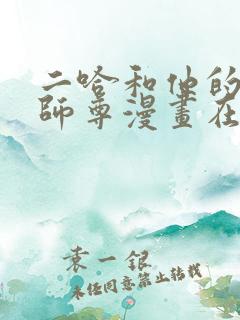 二哈和他的
師尊漫畫在
袁一銀
未任同意禁止转载